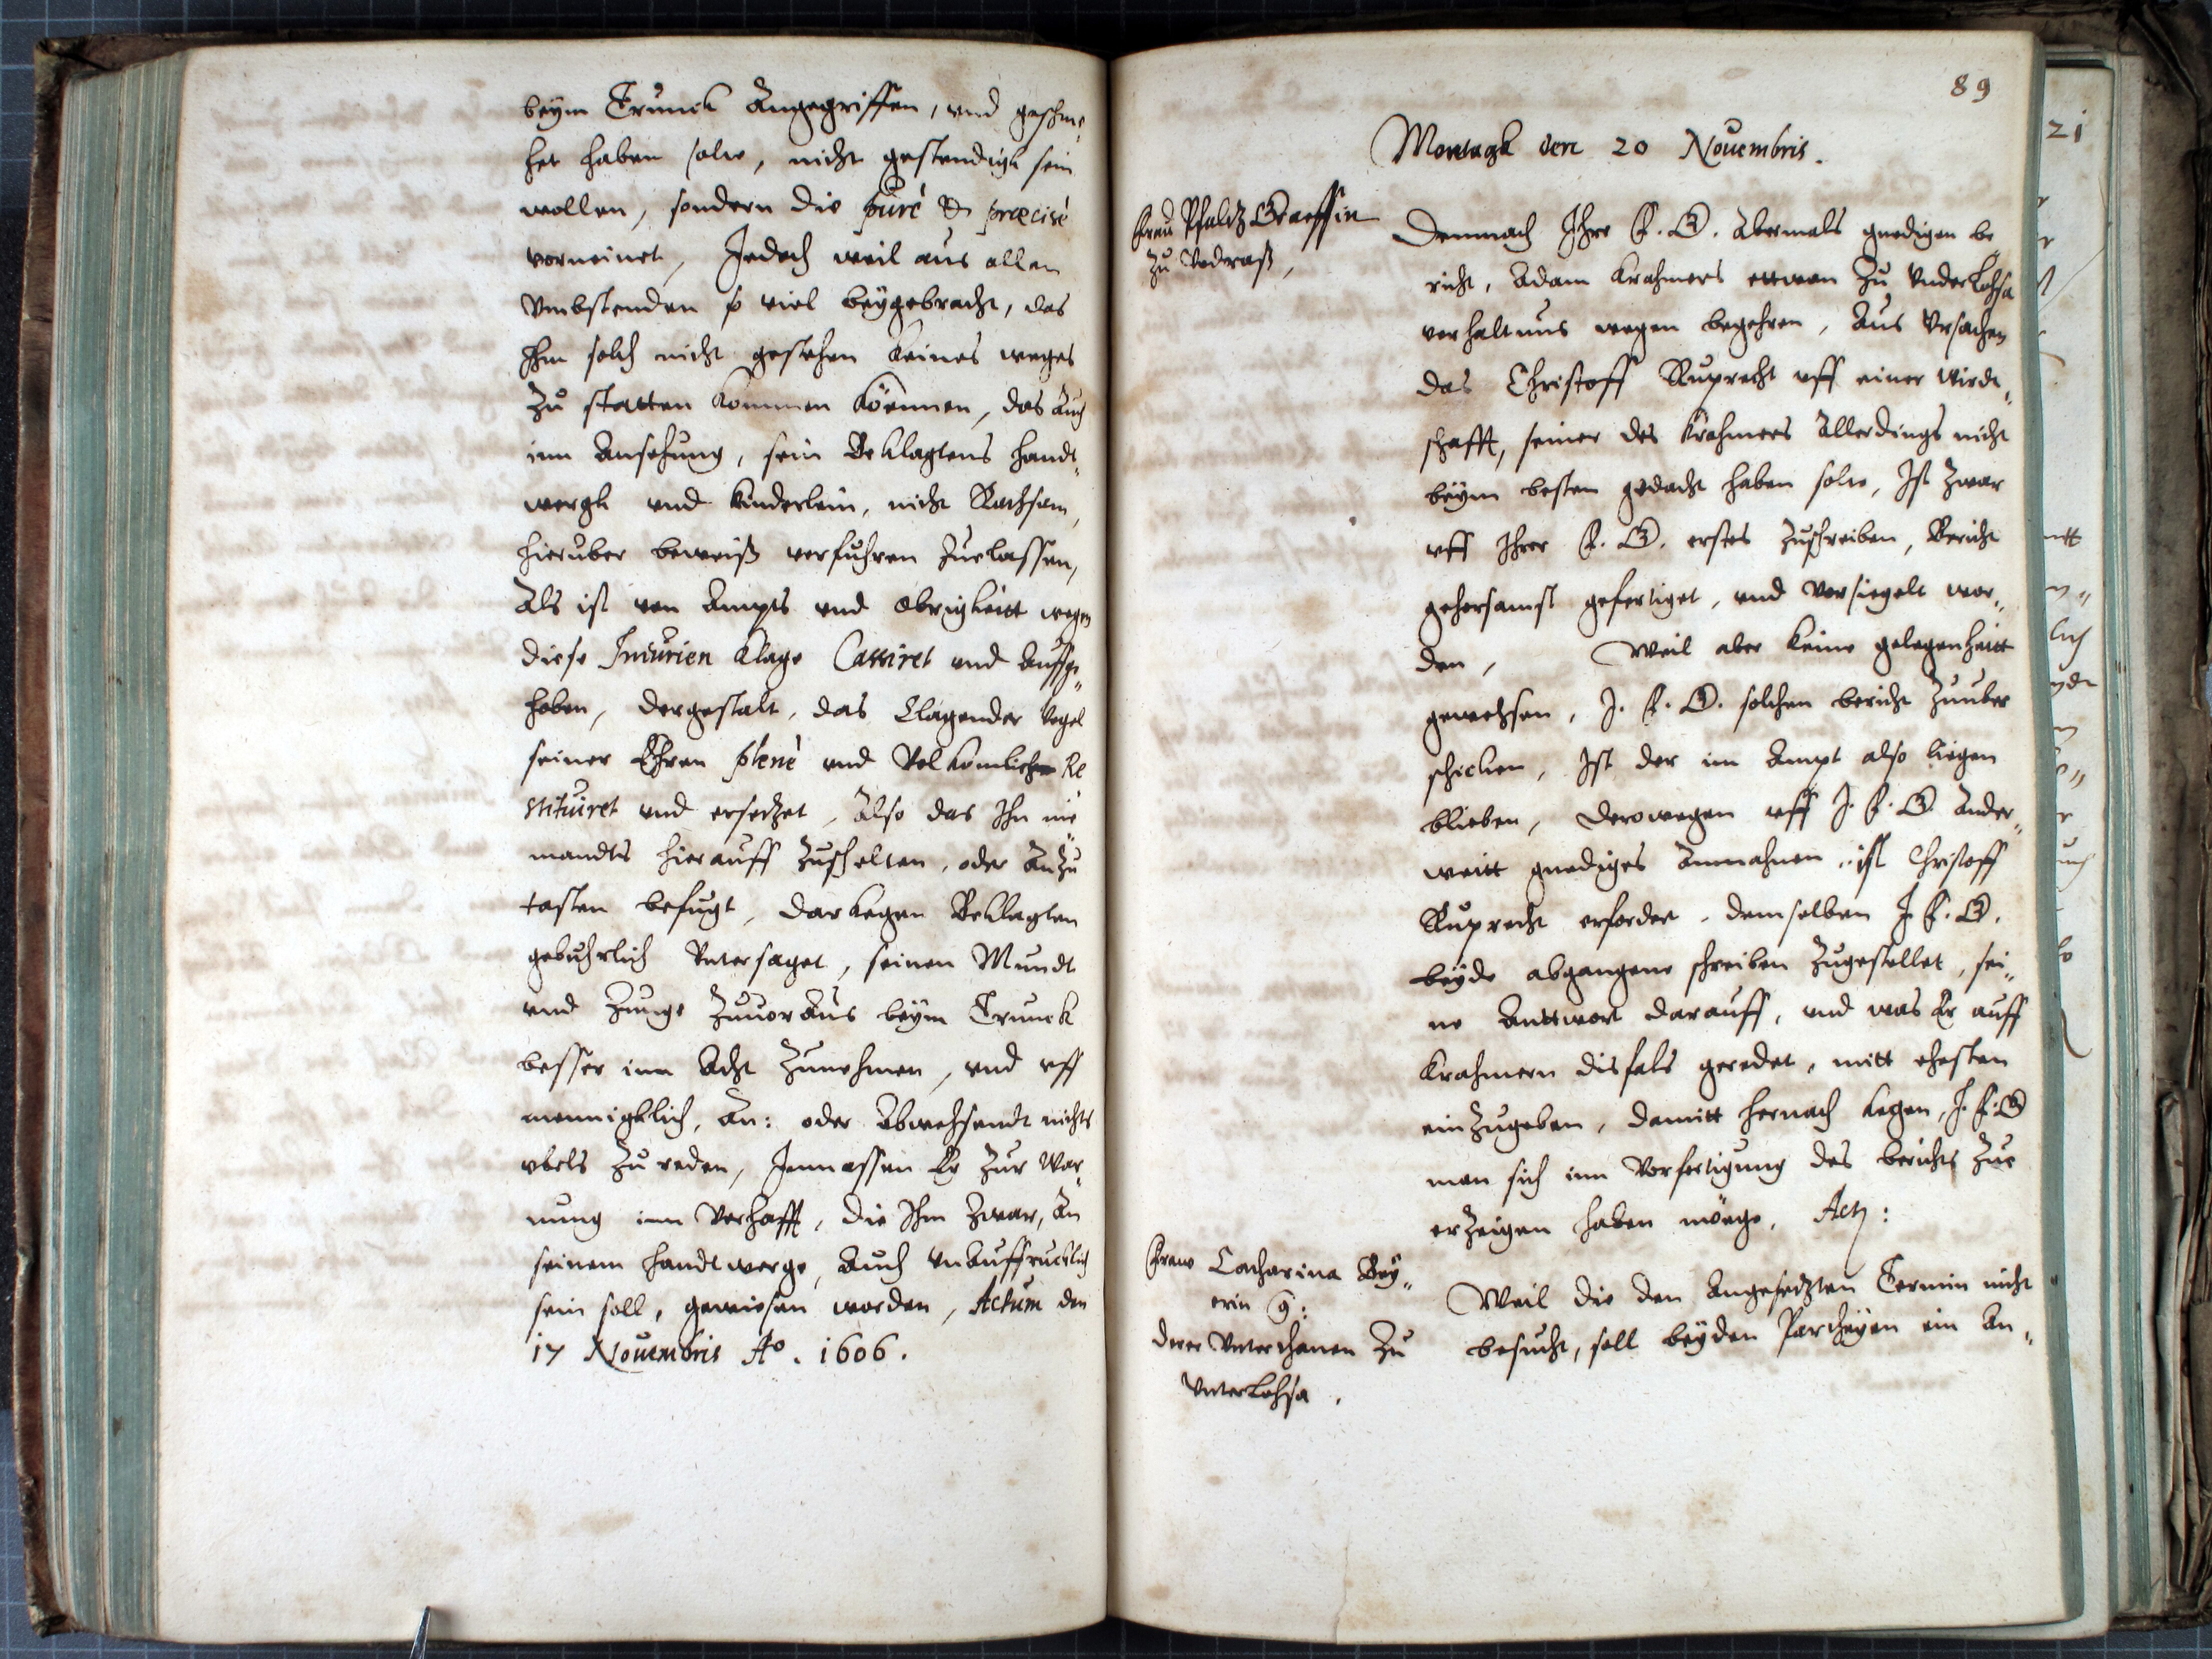 beÿm Trunck Angegriffen, vnd geschme„
het haben solte, nicht gestendigk sein
wollen, sondern die purè & præcisè
vorneinet, Jedoch weil aus allen
Vmbstenden so viel beÿgebracht, das
Ihm solch nicht gestehen keines weges
zu statten kommen können, das auch
inn Ansehung, sein Beklagtens handt„
wergk vnd kinderlein, nicht Rathsam,
hieruber beweiß verfuhren zuelassen,
Als ist von Ampts vnd Obrigkeitt wegen
diese Iniurien klage Cassiret vnd Auffge„
hoben, dergestalt, das Clagender Vogel
seiner Ehren plenè vnd Volkomlich Re
stituiret vnd ersetzet, Also das Ihn nie
mandts hierauff zuschelten, oder Anzu
tasten befugt, darkegen Beklagten
gebuhrlich Vntersaget, seinen Mundt
vnd Zunge zuuoraus beÿm Trunck
besser inn Acht zunehmen, vnd vff
mennigklich, An: oder Abwesendt nichts
vbels zu reden, Inmassen Er zur War„
nung inn Verhafft, die Ihm zwar, An
seinem handtwerge, Auch vnauffrucklich
sein soll, gewiesen worden, Actum den
17 Nouembris Ao. 1606.
89
Montagk den 20 Nouembris.
Frau Pfaltz Graeffin
zu
Demnach Ihre F. G. Abermals gnedigen be
richt, Adam Krahmers ettwan zu VnderLohsa
verhaltnus wegen begehren, Aus Vrsachen
das Christoff Ruprecht vff einer Wirdt„
schafft, seiner des Krahmers Allerdings nicht
beÿm besten gedacht haben solte, Ist zwar
vff Ihrer F. G. erstes zuschreiben, Bericht
gehorsamst gefertiget, vnd Versiegelt wor„
den, Weil aber keine gelegenheitt
gewehsen, J. F. G. solchen bericht zuuber
schicken, Ist der im Ampt also liegen
blieben, Derowegen vff J. F. G. Ander„
weitt gnediges Anmahnen, ist Christoff
Ruprecht erfordert, demselben J. F. G.
beÿde abgangene schreiben zugestellet, sei„
ne Anttwort darauff, vnd was Er auff
Krahmern disfals geredet, mitt ehesten
einzugeben, damitt hernach kegen, J. F. G
man sich inn Vorfertigung des berichts zue
erzeigen haben möege. Act:
Fraw Catharina Beÿ„
erin
derer Vnterthanen zu
VnterLohsa.
Weil die den Angesetzten Termin nicht
besucht, soll beÿden Partheÿen ein An„